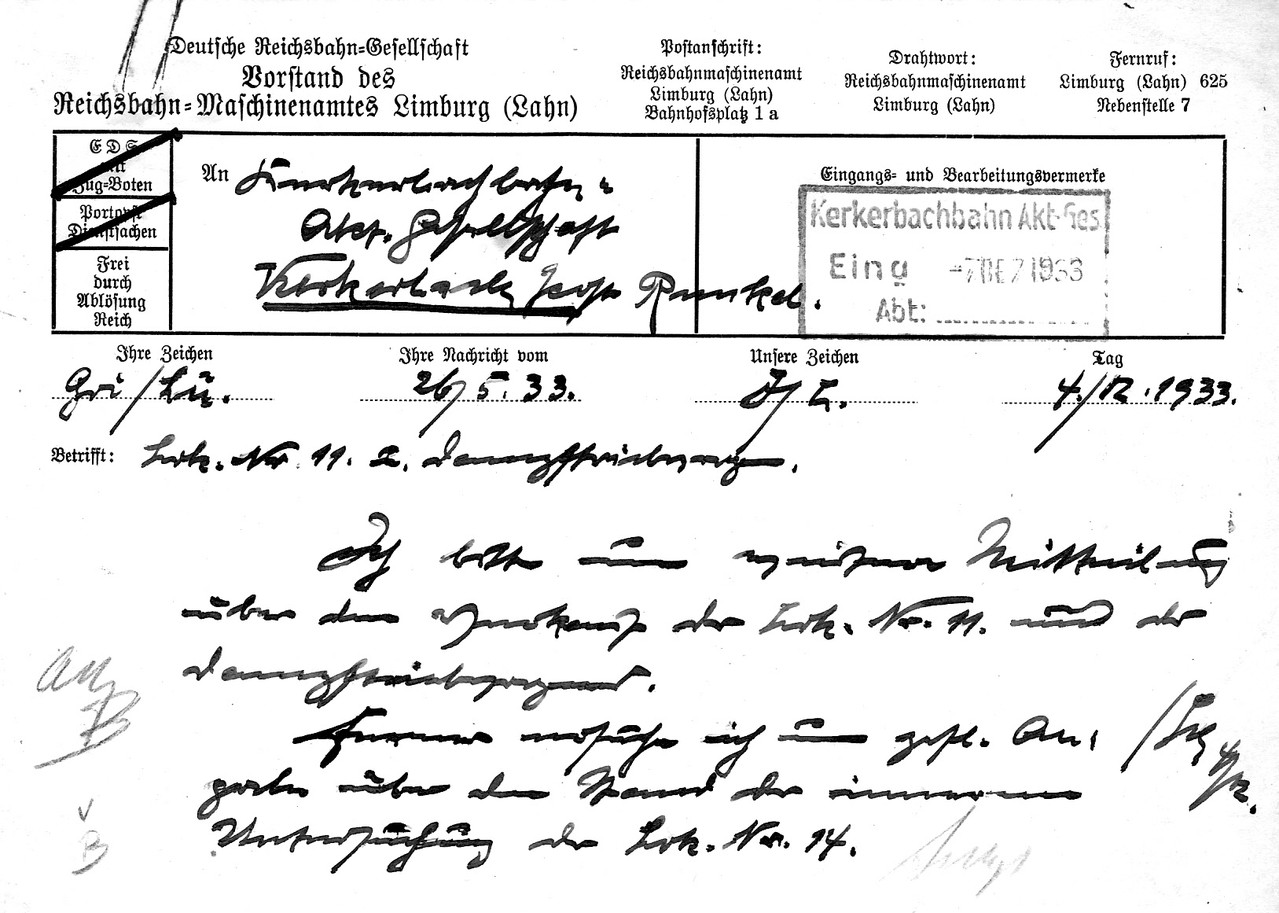 Deutsche Reichsbahn=Gesellschaft
Vorstand des
Reichsbahn=Maschinenamtes Limburg (Lahn)
Postanschrift:
Reichsbahnmaschinenamt
Limburg (Lahn)
Bahnhofsplatz 1 a
Drahtwort:
Reichsbahnmaschinenamt
Limburg (Lahn)
Fernruf:
Limburg (Lahn) 625
Nebenstelle 7
E D S
mit
Zug-Boten
Portopfl.
Dienstsachen
Frei
durch
Ablösung
Reich
An Kerkerbachbahn-
Akt. Gesellschaft
Kerkerbach Post Runkel.
Eingangs- und Bearbeitungsvermerke
Kerkerbachbahn Akt-Ges
Eing -7 DEZ 1933
Abt:
Ihre Zeichen
Gri/Lü.
Ihre Nachricht vom
26/5.33.
Unsere Zeichen
Tag
4./12.1933.
Betrifft: Lok. Nr. 11. 2. Dampftriebwagen.
Ich bitte um weitere Mitteilung
über den Verkauf der Lok. Nr. 11. und der
Dampftriebwagen.
Ferner ersuche ich um gefl. An-
gabe über den Stand der inneren
Untersuchung der Lok. Nr. 14.